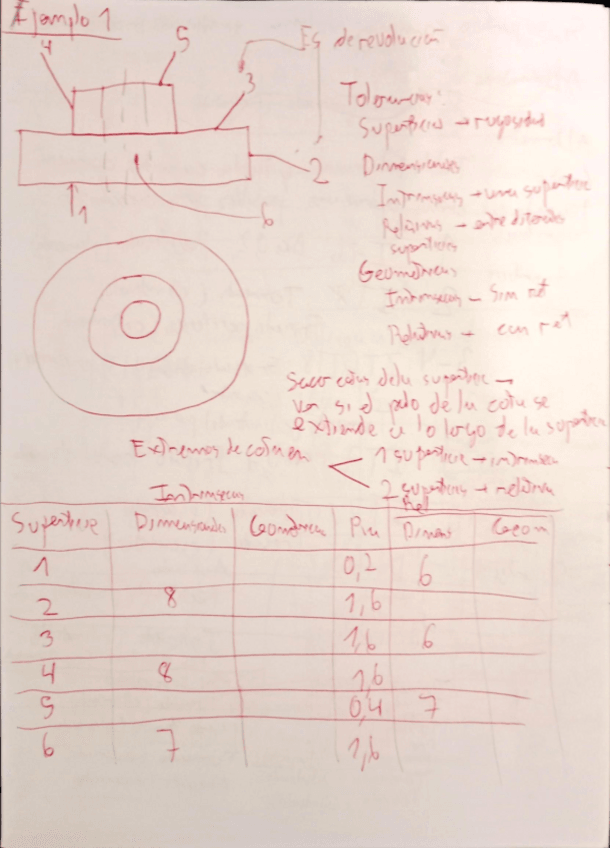 Ejemplo 1
4
5
Es de revolución
3
2
1
6
Tolerancias:
Superficies → rugosidad
Dimensionales
Intrínsecas → una superficie
Relativas → entre diferentes
superficies
Geométricas
Intrínsecas - Sin ref
Relativas → con ref
Sacar cotas de la superficie →
ver si el palo de la cota se
extiende a lo largo de la superficie
Extremos de cota en
1 superficie → intrínseca
2 superficies → relativa
Intrínsecas
Rel
Superficie Dimensionales Geométricas Dimens Geom
1 0,2 6
2 8 1,6
3 1,6 6
4 8 1,6
5 0,4 7
6 7 1,6